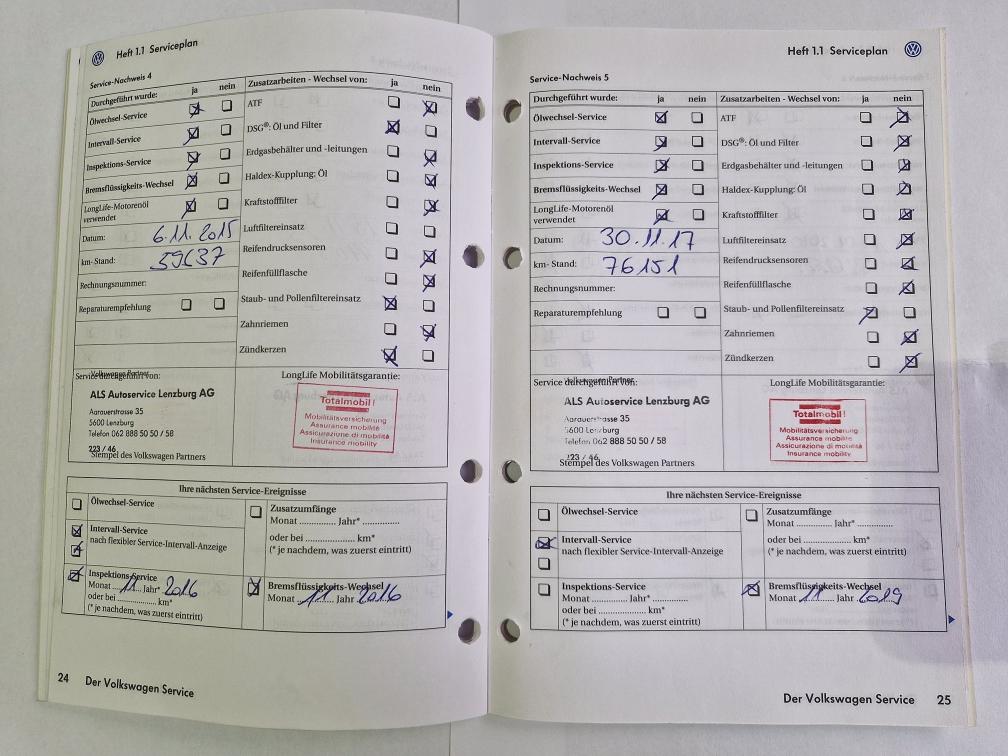 Heft 1.1 Serviceplan
Service-Nachweis 4
Durchgeführt wurde: ja nein
Ölwechsel-Service
Intervall-Service
Inspektions-Service
Bremsflüssigkeits-Wechsel
LongLife-Motorenöl
verwendet
Datum: 6.11.2015
km-Stand:
Rechnungsnummer:
Reparaturempfehlung
Zusatzarbeiten - Wechsel von: ja nein
ATF
DSG®: Öl und Filter
Erdgasbehälter und -leitungen
Haldex-Kupplung: Öl
Kraftstofffilter
Luftfiltereinsatz
Reifendrucksensoren
Reifenfüllflasche
Staub- und Pollenfiltereinsatz
Zahnriemen
Zündkerzen
Service durchgeführt von:
Volkswagen Partner
ALS Autoservice Lenzburg AG
Aarauerstrasse 35
5600 Lenzburg
Telefon 062 888 50 50 / 58
223 / 46
Stempel des Volkswagen Partners
LongLife Mobilitätsgarantie:
Totalmobil!
Mobilitätsversicherung
Assurance mobilité
Assicurazione di mobilità
Insurance mobility
Ihre nächsten Service-Ereignisse
Ölwechsel-Service
Intervall-Service
nach flexibler Service-Intervall-Anzeige
Inspektions-Service
Monat 11 Jahr* 2016
oder bei .................. km*
(* je nachdem, was zuerst eintritt)
Zusatzumfänge
Monat .............. Jahr* ..............
oder bei .................. km*
(* je nachdem, was zuerst eintritt)
Bremsflüssigkeits-Wechsel
Monat 11 Jahr 2016
24 Der Volkswagen Service
Heft 1.1 Serviceplan
Service-Nachweis 5
Durchgeführt wurde: ja nein
Ölwechsel-Service
Intervall-Service
Inspektions-Service
Bremsflüssigkeits-Wechsel
LongLife-Motorenöl
verwendet
Datum: 30.11.17
km-Stand: 76151
Rechnungsnummer:
Reparaturempfehlung
Zusatzarbeiten - Wechsel von: ja nein
ATF
DSG®: Öl und Filter
Erdgasbehälter und -leitungen
Haldex-Kupplung: Öl
Kraftstofffilter
Luftfiltereinsatz
Reifendrucksensoren
Reifenfüllflasche
Staub- und Pollenfiltereinsatz
Zahnriemen
Zündkerzen
Service durchgeführt von:
Volkswagen Partner
ALS Autoservice Lenzburg AG
Aarauerstrasse 35
5600 Lenzburg
Telefon 062 888 50 50 / 58
223 / 46
Stempel des Volkswagen Partners
LongLife Mobilitätsgarantie:
Totalmobil!
Mobilitätsversicherung
Assurance mobilité
Assicurazione di mobilità
Insurance mobility
Ihre nächsten Service-Ereignisse
Ölwechsel-Service
Intervall-Service
nach flexibler Service-Intervall-Anzeige
Inspektions-Service
Monat .............. Jahr* ..............
oder bei .................. km*
(* je nachdem, was zuerst eintritt)
Zusatzumfänge
Monat .............. Jahr* ..............
oder bei .................. km*
(* je nachdem, was zuerst eintritt)
Bremsflüssigkeits-Wechsel
Monat 11 Jahr 2019
Der Volkswagen Service 25